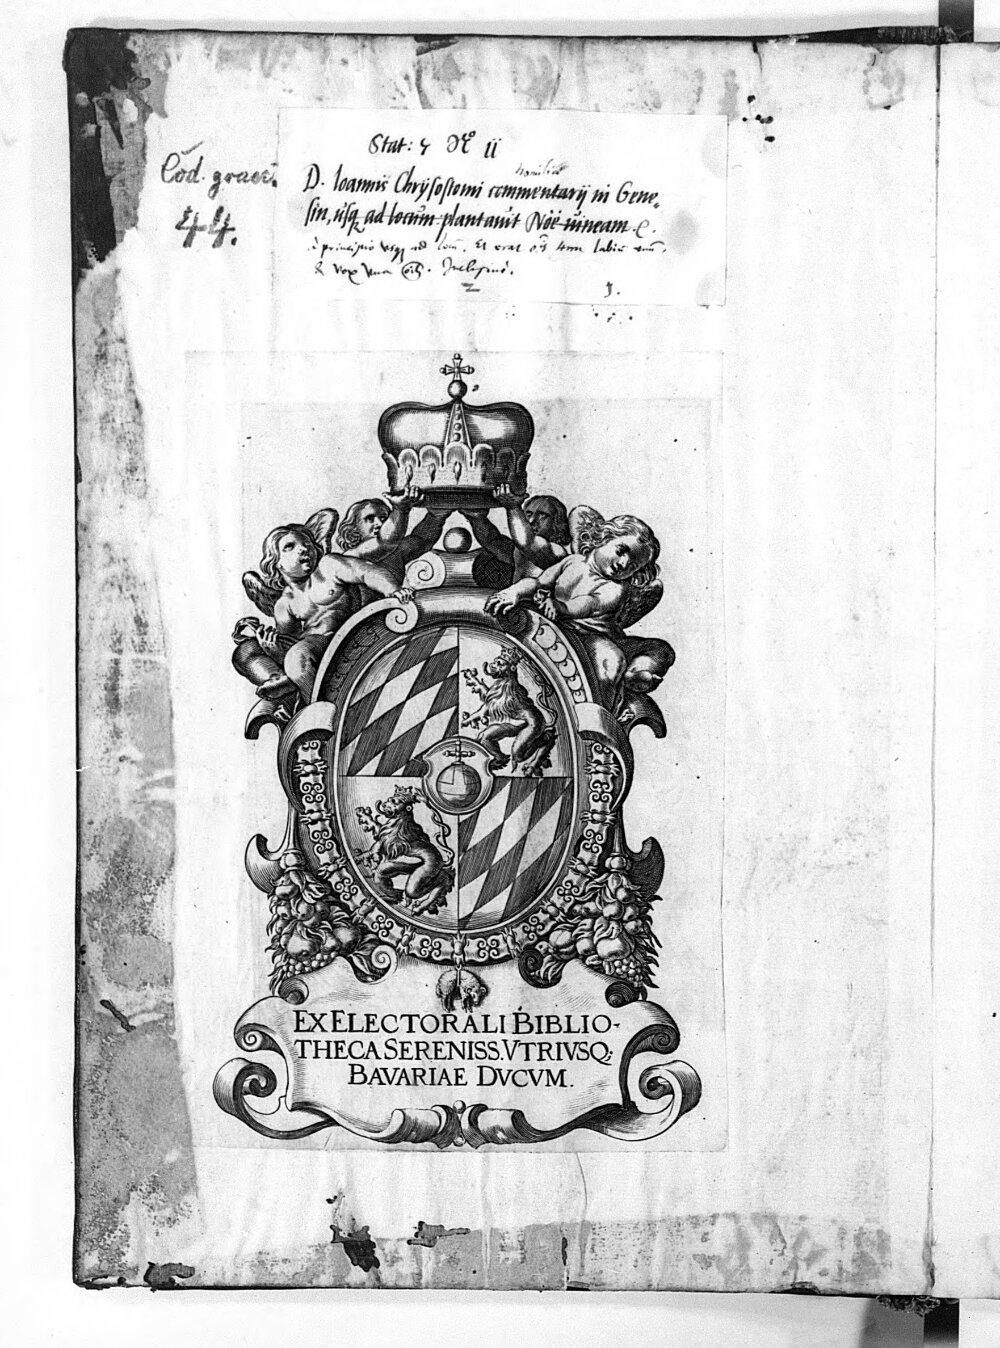 Stat: 7 No ii
Cod. graec.
44.
homiliae
D. Ioannis Chrysostomi commentarij in Gene-
sin, usq ad locum plantauit Noë uineam.
à principio usq ad locū. Et erat
& vox una
2 J.
EX ELECTORALI BIBLIO-
THECA SERENISS. VTRIVSQ;
BAVARIAE DVCVM.